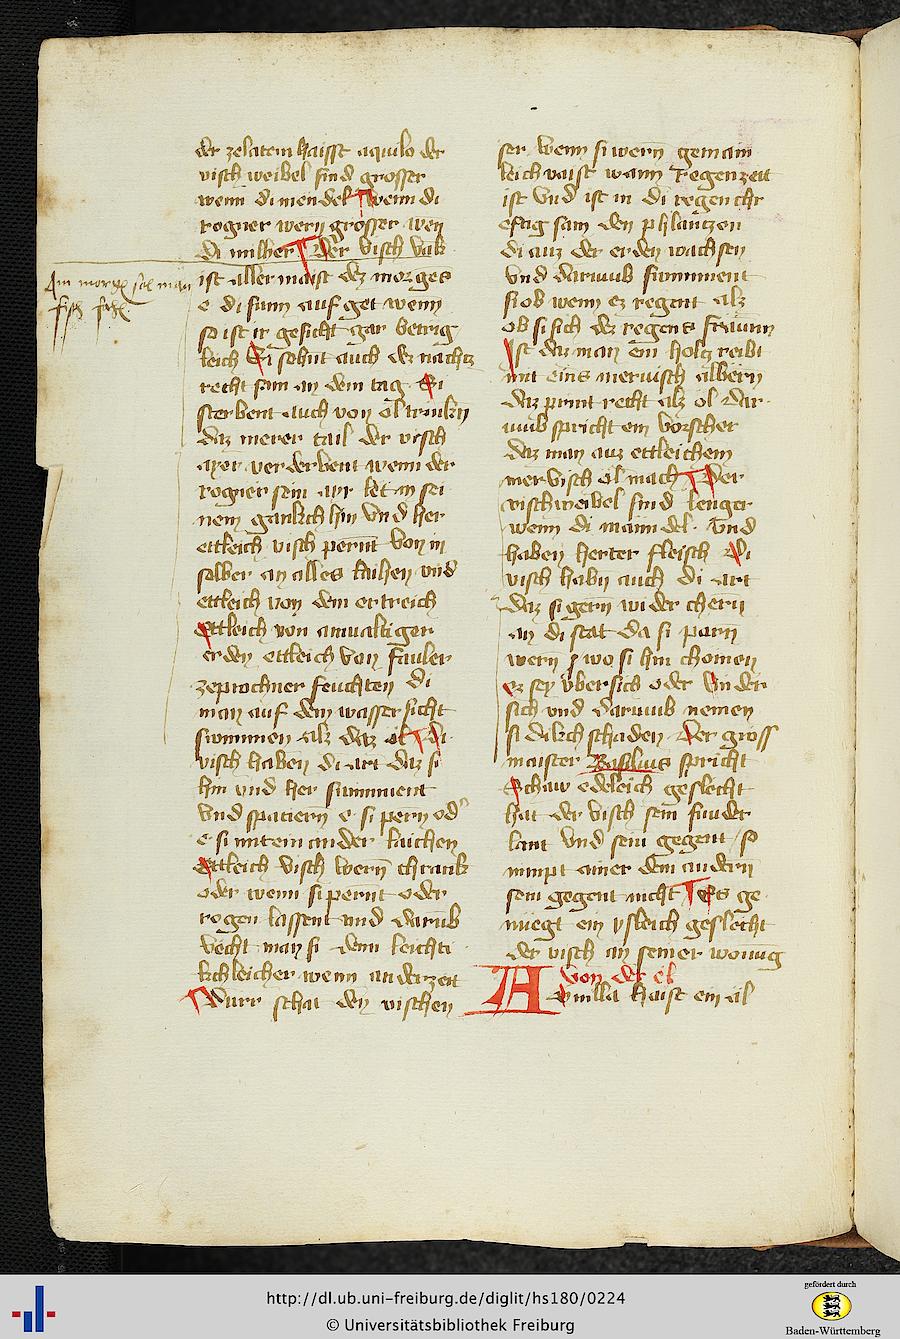 der zelatein haisst aquilo der
visch weibel sind grosser
wenn di mendel wenn di
rogner wern grosser wen
di milher Der visch valk
ist aller maist dez morges
e di sunn auf get wenn
so ist ir gesicht gar betrig
leich Si sehnt auch dez nachtz
recht sam an dem tag Si
sterbent auch von öl trinkn
daz merer tail der visch
ayer verderbent wenn der
rogner sein ayr let in sei
nem ganklich hin vnd her
ettleich visch pernt von in
selber an alles laihen vnd
ettleich von dem ertreich
ettleich von
erden ettleich von fauler
zeprochner feuchten di
man auf dem wasser sicht
swimmen alz daz öl Di
visch haben di art daz si
hin vnd her swimment
vnd spaciern e si pern od
e si mit einander laichen
ettleich visch wern chrank
oder wenn si pernt oder
rogen lassent vnd darüb
vecht man si denn leichti
kchleicher wenn ander zeit
Dürr schat den vischen
Am morgen sol man
fisch
ser wenn si wern gemain
leich vaist wann regenzeit
ist vnd ist in di regen chr
eftig sam den phlantzen
di auz der erden wachsen
vnd darumb swimment
si ob wenn ez regent alz
ob si sich dez regens fräunn
Ist daz man ein holtz reibt
mit eins mervisch albern
daz print recht alz öl dar
umb spricht ein vorscher
daz man auz ettleichem
mervisch öl mach Der
vischweibel sind lenger
wenn di männdel Vnd
haben herter fleisch Di
visch habn auch di art
daz si gern wider chern
an di stat da si porn
wern wo si hin chomen
ez sey vbersich oder vnder
sich vnd darumb nemen
si dikch schaden Der gross
maister Basilius spricht
Schaw edeleich geslecht
hat der visch sein sunder
lant vnd sein gegent so
nimpt ainer dem andern
sein gegent nicht Es ge
nuegt ein ysleich geslecht
der visch an seiner wonūg
von der el
Anwilla haist ein äl
http://dl.ub.uni-freiburg.de/diglit/hs180/0224
© Universitätsbibliothek Freiburg
gefördert durch
Baden-Württemberg